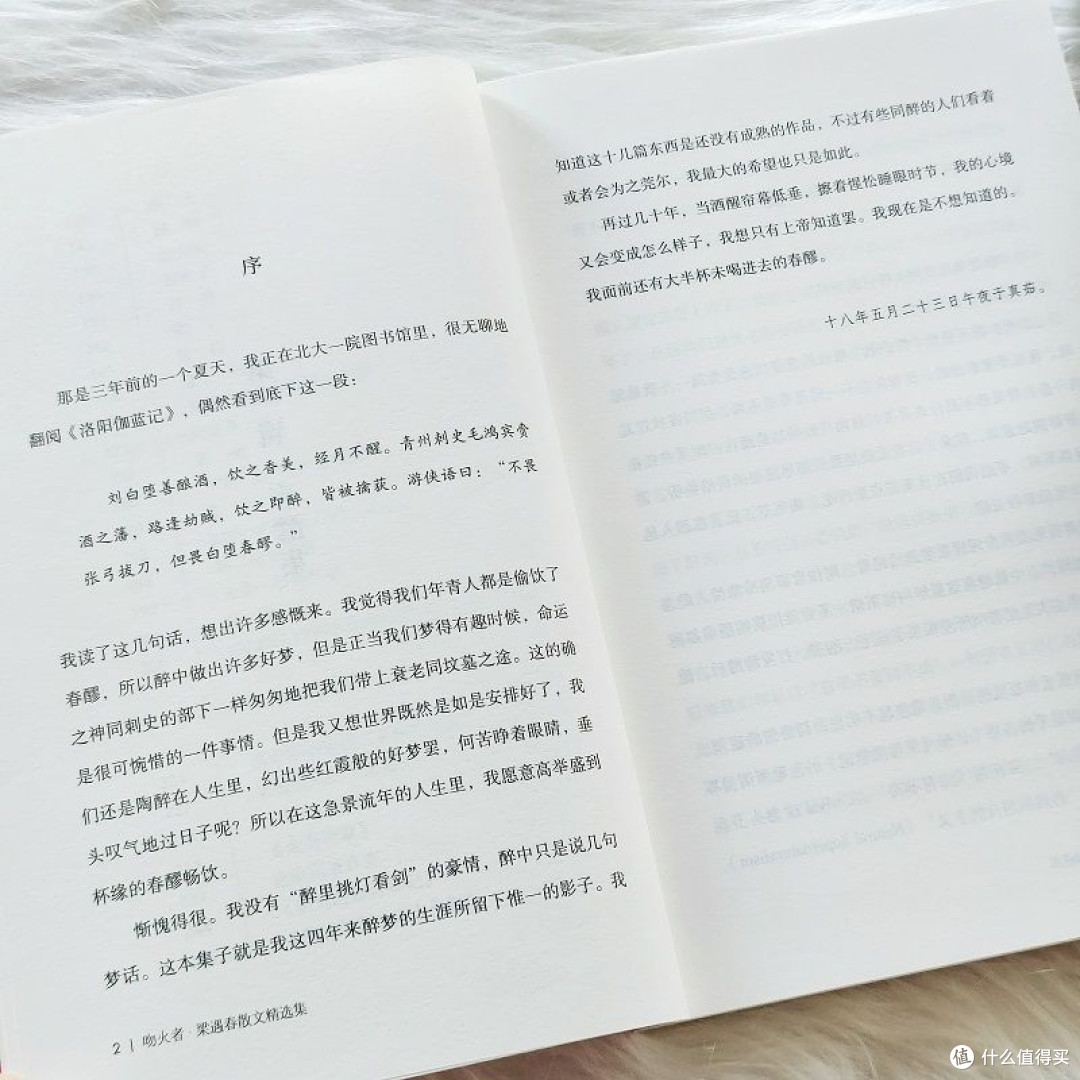 序
那是三年前的一个夏天，我正在北大一院图书馆里，很无聊地
翻阅《洛阳伽蓝记》，偶然看到底下这一段：
刘白堕善酿酒，饮之香美，经月不醒。青州刺史毛鸿宾赍
酒之藩，路逢劫贼，饮之即醉，皆被擒获。游侠语曰：“不畏
张弓拔刀，但畏白堕春醪。”
我读了这几句话，想出许多感慨来。我觉得我们年青人都是偷饮了
春醪，所以醉中做出许多好梦，但是正当我们梦得有趣时候，命运
之神同刺史的部下一样匆匆地把我们带上衰老同坟墓之途。这的确
是很可惋惜的一件事情。但是我又想世界既然是如是安排好了，我
们还是陶醉在人生里，幻出些红霞般的好梦罢，何苦睁着眼睛，垂
头叹气地过日子呢？所以在这急景流年的人生里，我愿意高举盛到
杯缘的春醪畅饮。
惭愧得很。我没有“醉里挑灯看剑”的豪情，醉中只是说几句
梦话。这本集子就是我这四年来醉梦的生涯所留下惟一的影子。我
2 | 吻火者·梁遇春散文精选集
知道这十几篇东西是还没有成熟的作品，不过有些同醉的人们看着
或者会为之莞尔，我最大的希望也只是如此。
再过几十年，当酒醒帘幕低垂，擦着惺忪睡眼时节，我的心境
又会变成怎么样子，我想只有上帝知道罢。我现在是不想知道的。
我面前还有大半杯未喝进去的春醪。
十八年五月二十三日午夜于真茹。
值 什么值得买